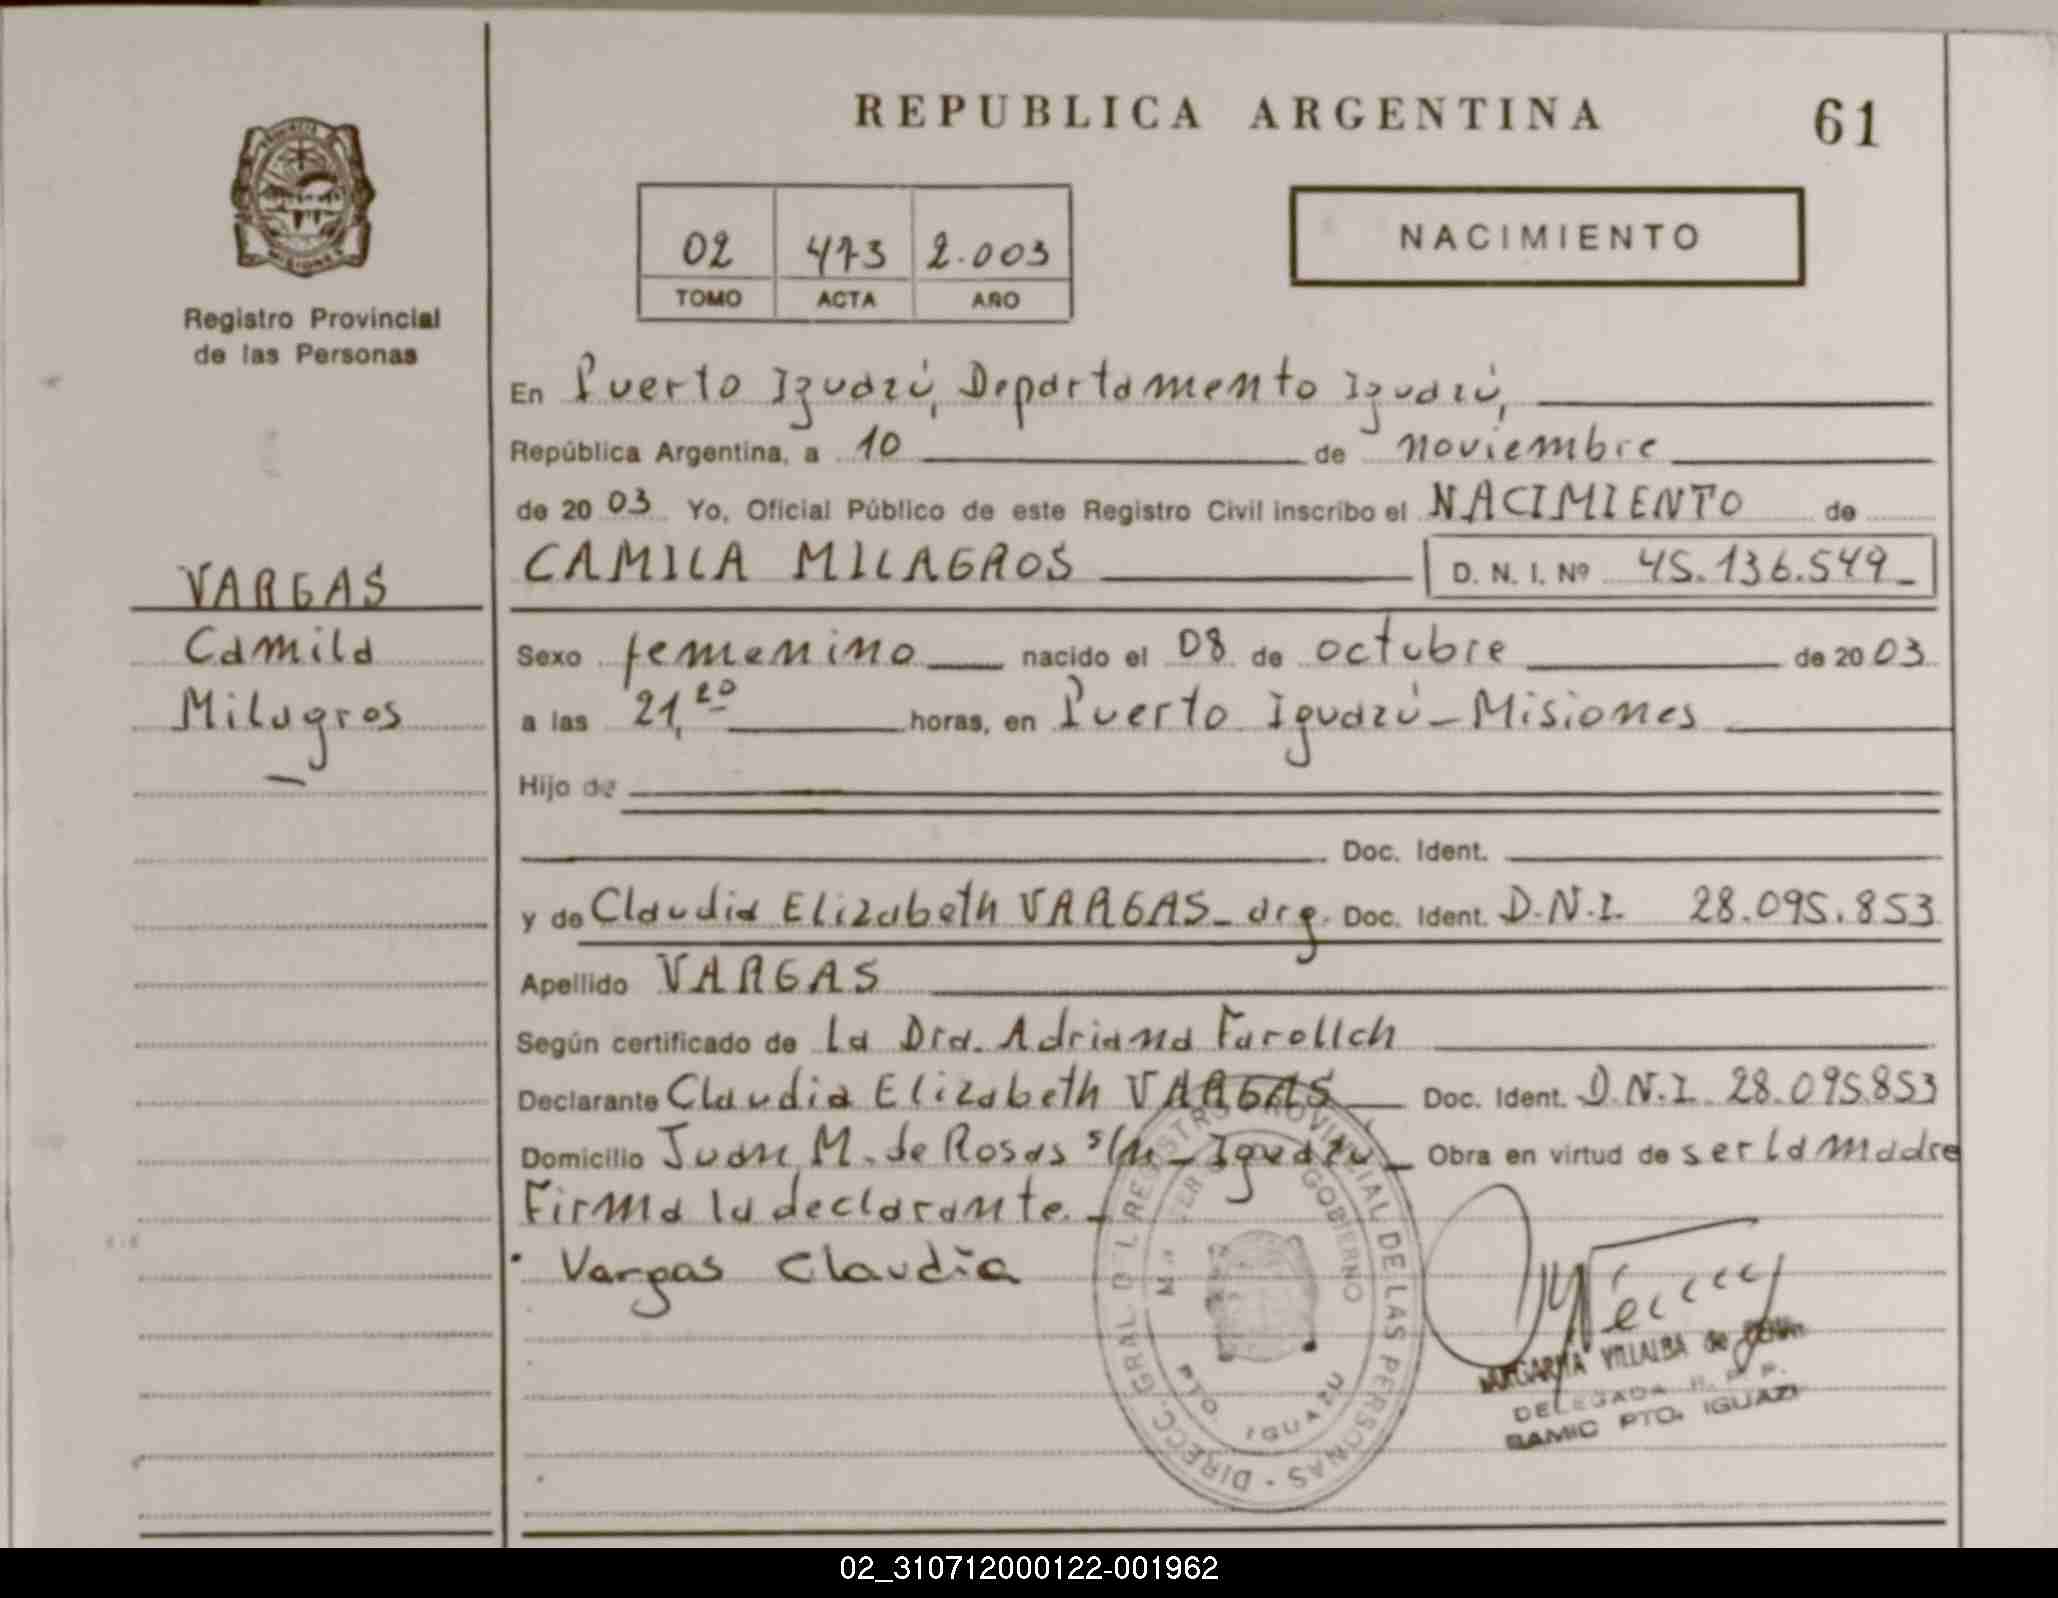 REPUBLICA ARGENTINA
61
02 473 2.003
TOMO ACTA AÑO
NACIMIENTO
MISIONES
Registro Provincial
de las Personas
VARGAS
Camila
Milagros
En Puerto Iguazú, Departamento Iguazú,
República Argentina, a 10 de noviembre
de 20 03 Yo, Oficial Público de este Registro Civil inscribo el NACIMIENTO de
CAMILA MILAGROS D. N. I. Nº 45.136.549_
Sexo femenino nacido el 08 de octubre de 20 03
a las 21,20 horas, en Puerto Iguazú_Misiones
Hijo de
Doc. Ident.
y de Claudia Elizabeth VARGAS_ arg. Doc. Ident. D.N.I. 28.095.853
Apellido VARGAS
Según certificado de La Dra. Adriana
Declarante Claudia Elizabeth VARGAS Doc. Ident. D.N.I. 28.095.853
Domicilio Juan M. de Rosas s/n _ Iguazú_ Obra en virtud de ser la madre
Firma la declarante._
Vargas Claudia
DIRECC. GRAL DEL REGISTRO PROVINCIAL DE LAS PERSONAS
GOBIERNO
PTO. IGUAZU
MARGARITA VILLALBA de
DELEGADA R. P. P.
SAMIC PTO. IGUAZU
02_310712000122-001962